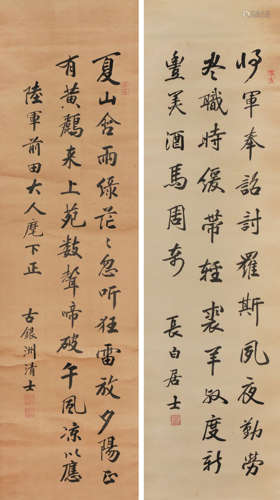 将軍奉詔討羅斯夙夜勤勞
尽職時緩帶輕裘羊叔度新
豊美酒馬周奇
長白居士
夏山含雨綠茫〻忽听狂雷放夕陽正
有黃鸝来上苑数聲啼破午風凉以應
陸軍前田大人麾下正
古銀洲清士